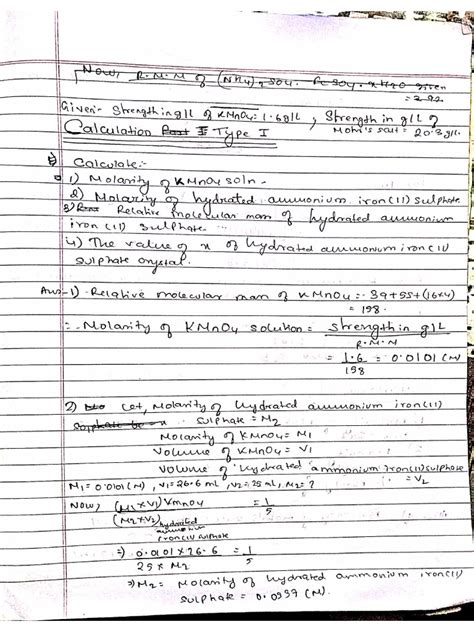 Now, R.M.M of (NH4)2SO4. FeSO4. xH2O given
= 392
Given:- Strength in g/L of KMnO4: 1.6g/L , Strength in g/L of
Mohr's salt = 20.3g/L.
Calculation Part I Type I
Calculate:-
1) Molarity of KMnO4 soln.
2) Molarity of hydrated ammonium iron(II) sulphate
3) Relative molecular mass of hydrated ammonium
iron (II) sulphate.
4) The value of x of hydrated ammonium iron(II)
sulphate crystal.
Ans-1) Relative molecular mass of KMnO4 = 39+55+(16x4)
= 158.
∴ Molarity of KMnO4 solution = strength in g/L
R.M.M
= 1.6 = 0.0101 (M)
158
2) Let, Molarity of hydrated ammonium iron(II)
sulphate = M2
Molarity of KMnO4 = M1
Volume of KMnO4 = V1
Volume of hydrated ammonium iron(II) sulphate
= V2
M1 = 0.0101(M), V1 = 26.6 mL, V2 = 25 mL, M2 = ?
Now, (M1xV1) KMnO4 = 1
(M2xV2) hydrated 5
ammonium
iron(II) sulphate
⇒ 0.0101 x 26.6 = 1
25 x M2 5
⇒ M2 = Molarity of hydrated ammonium iron(II)
sulphate = 0.0537 (M).